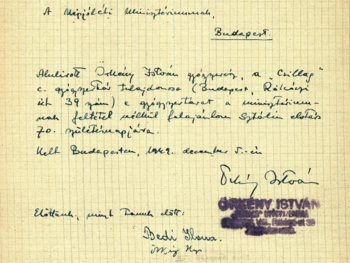 A Népjóléti Minisztériumnak,
Budapest.
Alulírott Örkény István gyógyszerész, a "Csillag"
c. gyógyszertár tulajdonosa (Budapest, Rákóczi
út 39 szám) e gyógyszertárat a minisztérium-
nak feltétel nélkül felajánlom Sztálin elvtárs
70. születésnapjára.
Kelt Budapesten, 1949. december 5.-én
Örkény István
ÖRKÉNY ISTVÁN
Előttünk, mint tanuk előtt:
Bedi Ilona